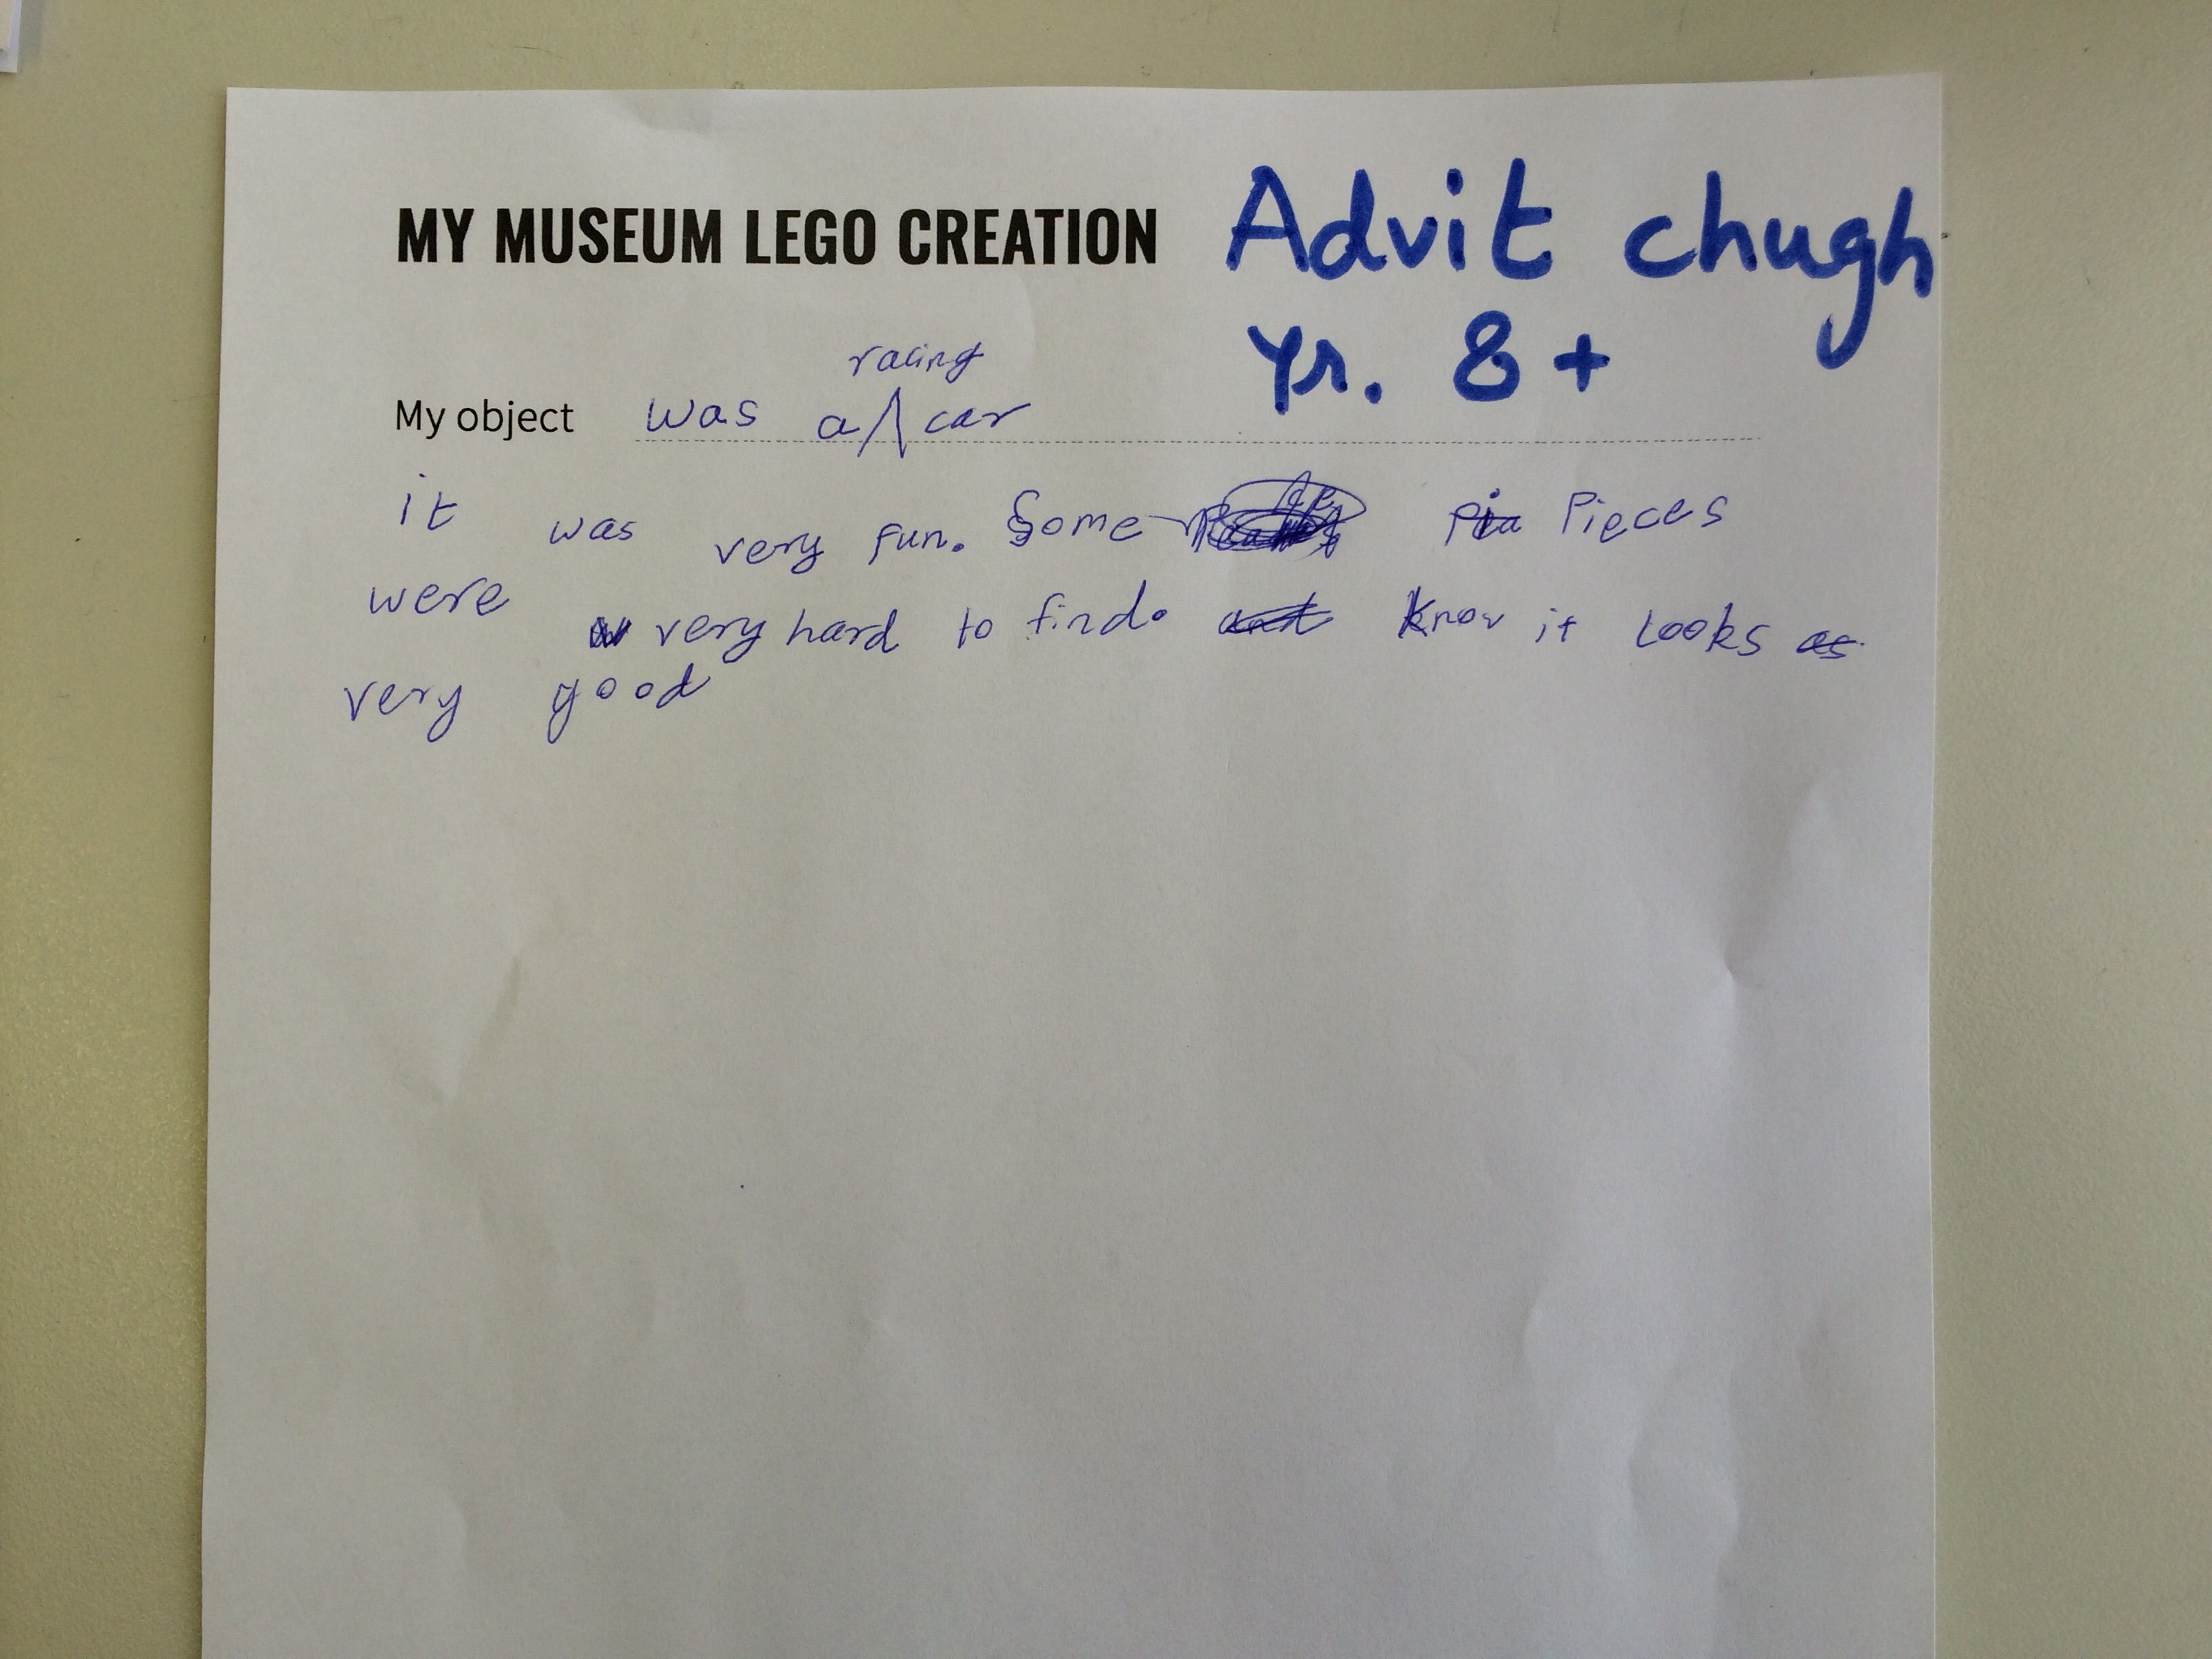 MY MUSEUM LEGO CREATION
Advit chugh
Yr. 8+
My object was a racing car
it was very fun. Some Pieces
were very hard to find. know it looks
very good